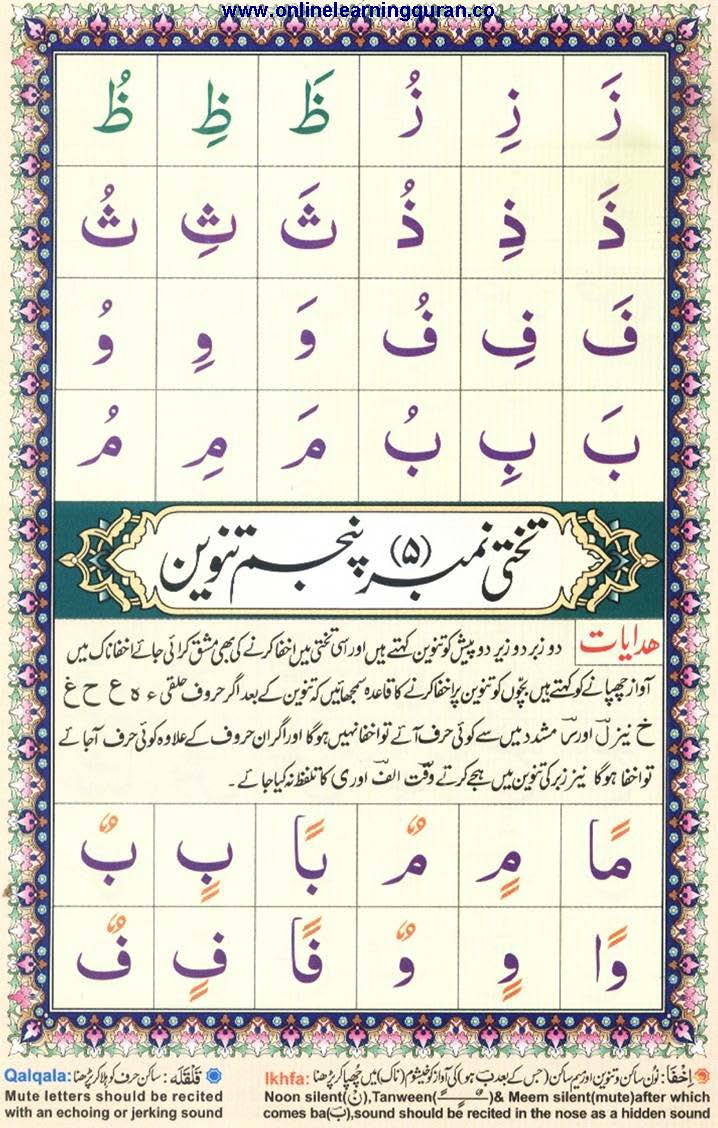 www.onlinelearningquran.co
زَ زِ زُ ظَ ظِ ظُ
ذَ ذِ ذُ ثَ ثِ ثُ
فَ فِ فُ وَ وِ وُ
بَ بِ بُ مَ مِ مُ
تختی نمبر (۵) پنجم تنوین
ھدایات دو زبر دو زیر دو پیش کو تنوین کہتے ہیں اور اسی تختی میں اخفا کرنے کی بھی مشق کرائی جائے اخفا ناک میں
آواز چھپانے کو کہتے ہیں بچّوں کو تنوین پر اخفا کرنے کا قاعدہ سمجھائیں کہ تنوین کے بعد اگر حروف حلقی ء ہ ع ح غ
خ نیز لؔ اور رؔ مشدد میں سے کوئی حرف آئے تو اخفا نہیں ہوگا اور اگر ان حروف کے علاوہ کوئی حرف آجائے
تو اخفا ہوگا نیز زبر کی تنوین میں ہجے کرتے وقت الفؔ اور ی کا تلفظ نہ کیا جائے۔
مًا مٍ مٌ بًا بٍ بٌ
وًا وٍ وٌ فًا فٍ فٌ
اِخْفَا: نون ساکن و تنوین اور میم ساکن (جس کے بعد ب ہو) کی آواز کو خیشوم (ناک) میں چھپا کر پڑھنا Ikhfa:
Noon silent(نْ),Tanween(ـًـٍـٌ)& Meem silent(mute)after which
comes ba(بَ),sound should be recited in the nose as a hidden sound
قَلْقَلَه: ساکن حرف کو ہلا کر پڑھنا Qalqala:
Mute letters should be recited
with an echoing or jerking sound